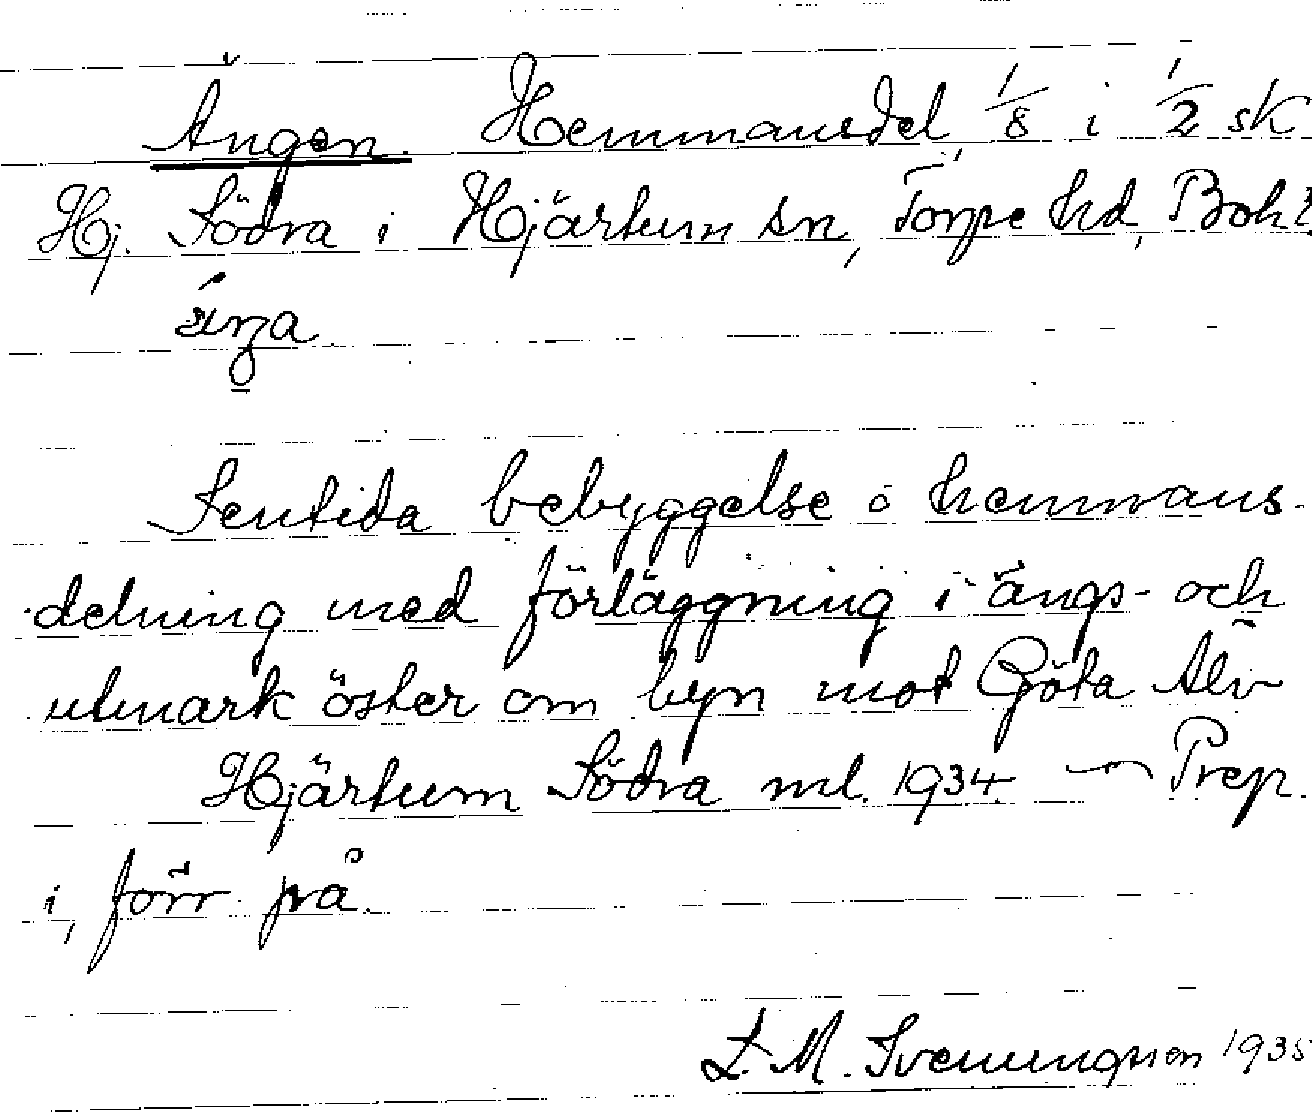 Ängen. Hemmansdel, 1/8 i 1/2 sk
Hj. Södra i Hjärtum sn, Torpe hd, Boh.
Sentida bebyggelse å hemmans-
delning med förläggning i ängs- och
utmark öster om byn mot Göta Älv
Hjärtum Södra ml. 1934. — Prep.
i, förr på.
M. Svenungsson 1935